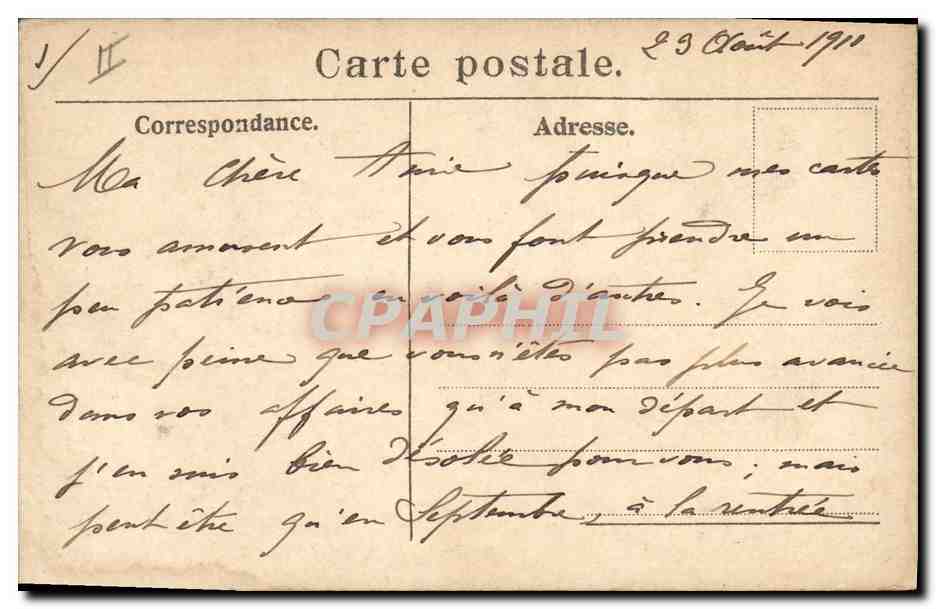 1/ II
23 Août 1911
Carte postale.
Correspondance.
Adresse.
Ma Chère puisque mes cartes
vous amusent et vous font prendre un
peu patience en voilà d'autres. Je vois
avec peine que vous n'êtes pas plus avancée
dans vos affaires qu'à mon départ et
j'en suis bien désolée pour vous; mais
peut être qu'en Septembre, à la rentrée
CPAPHIL